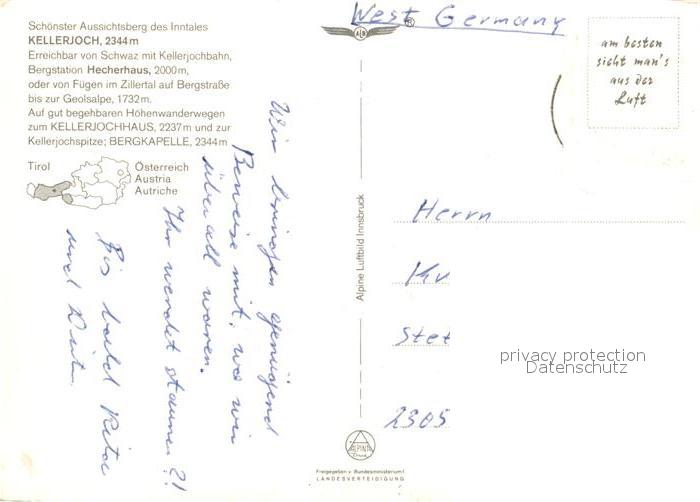 Schönster Aussichtsberg des Inntales
KELLERJOCH, 2344 m
Erreichbar von Schwaz mit Kellerjochbahn,
Bergstation Hecherhaus, 2000 m,
oder von Fügen im Zillertal auf Bergstraße
bis zur Geolsalpe, 1732 m.
Auf gut begehbaren Höhenwanderwegen
zum KELLERJOCHHAUS, 2237 m und zur
Kellerjochspitze; BERGKAPELLE, 2344 m
Tirol
Österreich
Austria
Autriche
Wir bringen genügend
Beweise mit, wo wir
überall waren.
Ihr werdet staunen?!
Bis bald Rita
und
Alpine Luftbild Innsbruck
ALPINA
Freigegeben v. Bundesministerium f.
LANDESVERTEIDIGUNG
West Germany
ALB
am besten
sieht man's
aus der
Luft
Herrn
Kv
Stet
2305
privacy protection
Datenschutz